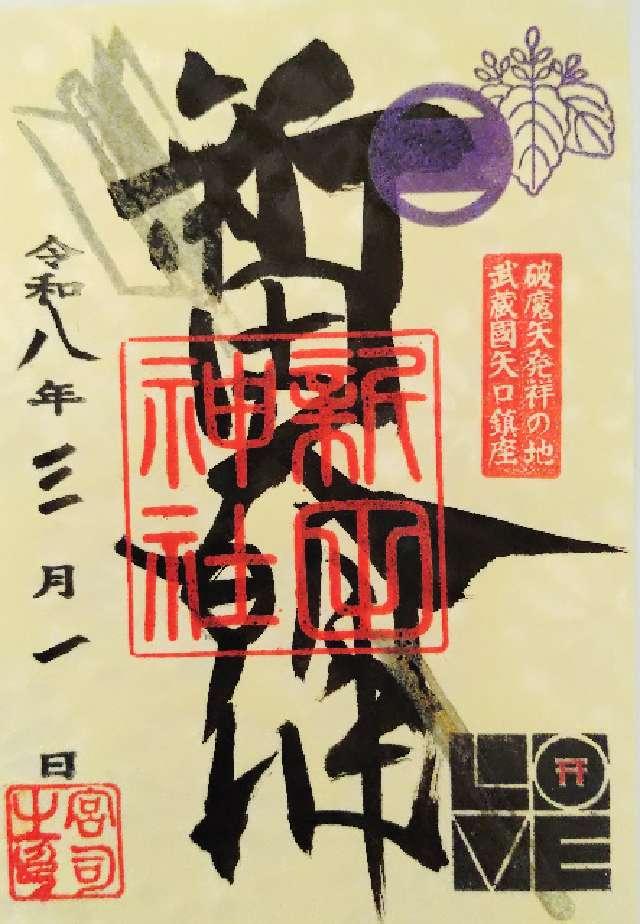 破魔矢発祥の地
武蔵國矢口鎮座
新田大神
新田
神社
令和八年三月一日
宮司
LOVE